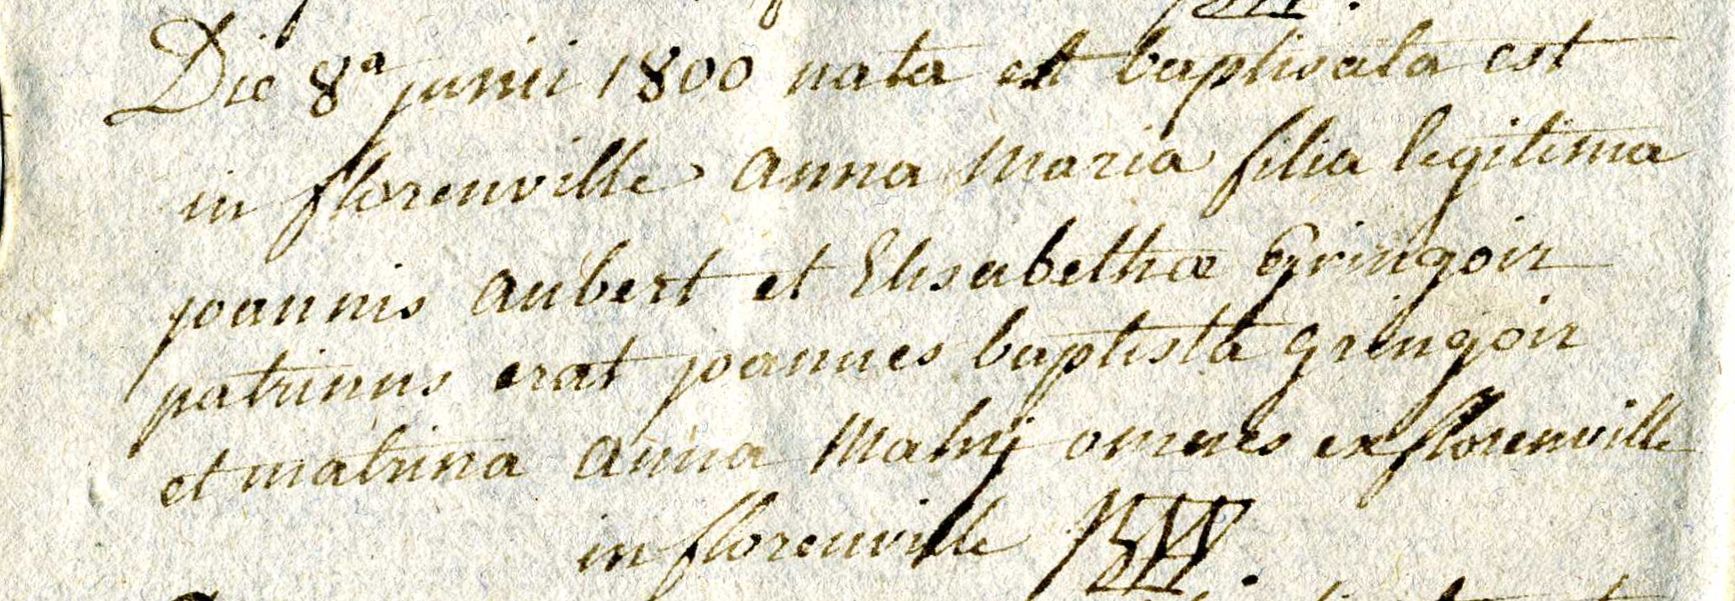 Die 8a junii 1800 nata et baptisata est
in florenville anna Maria filia legitima
joannis aubert et Elisabethæ Gringoir
patrinus erat joannes baptista gringoir
et matrina anna omnes ex florenville
in florenville